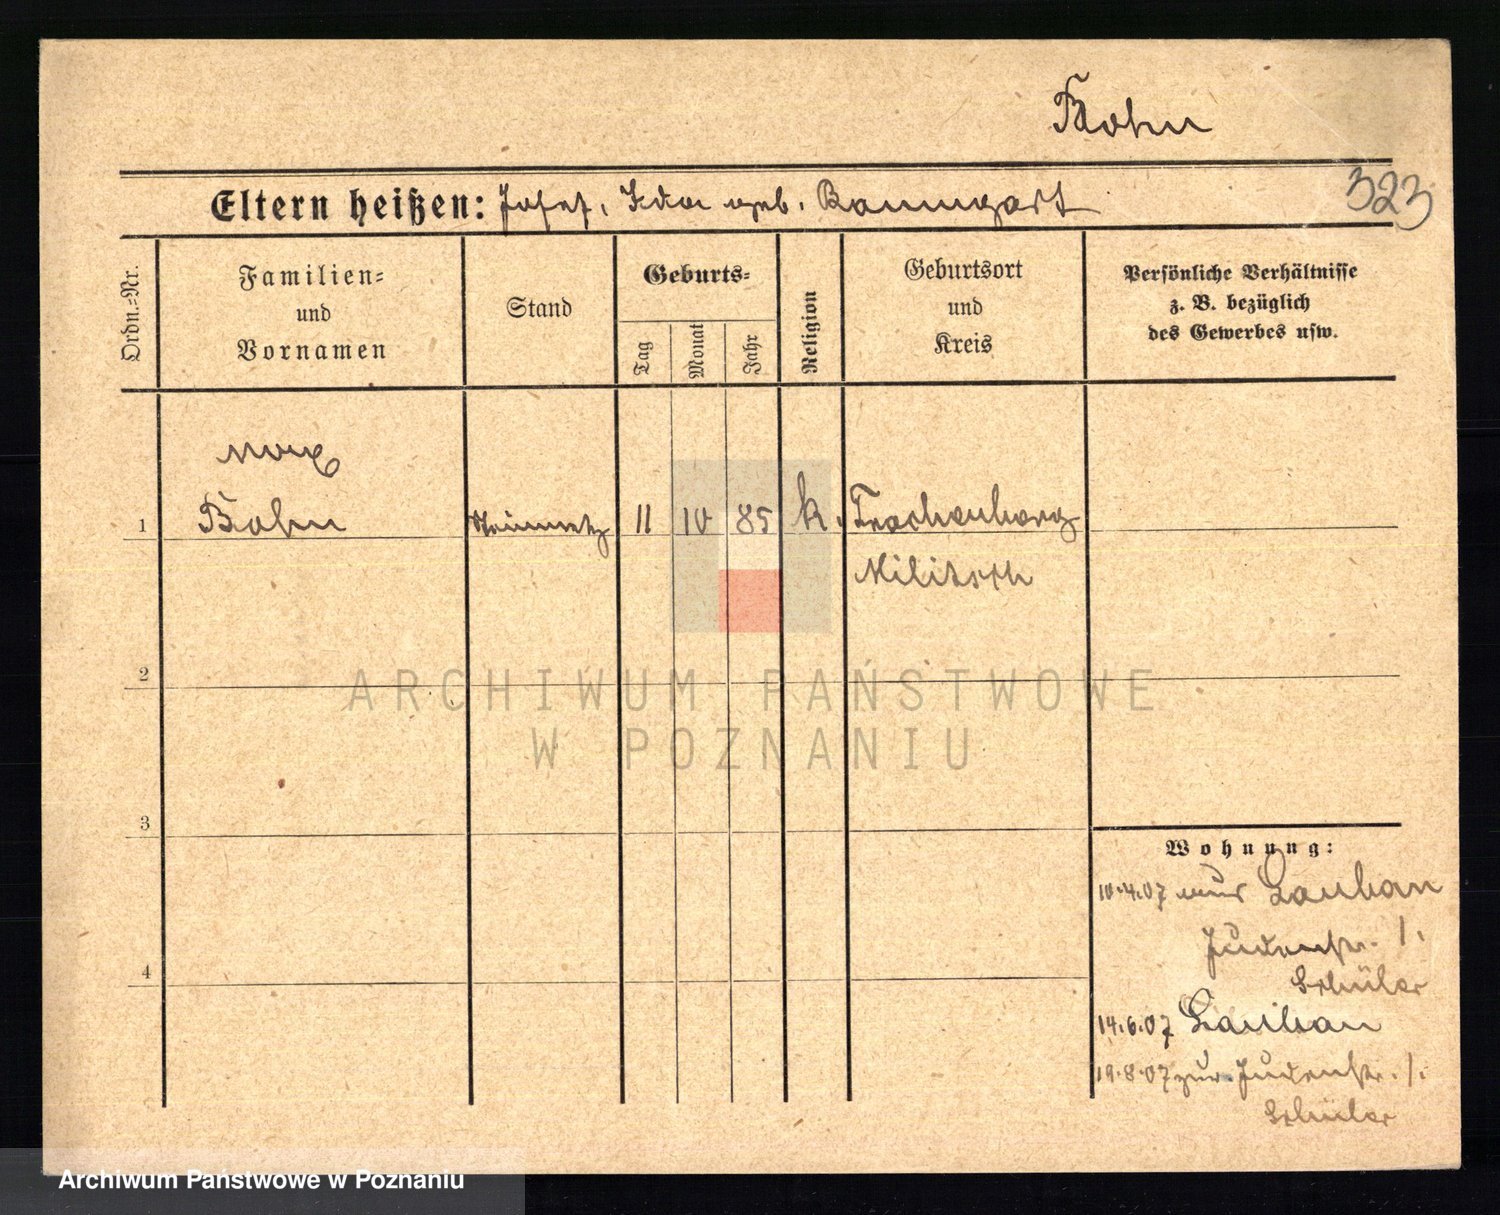 Bohn
323
Eltern heißen: Josef, Ida geb. Baumgart
Ordn.=Nr.
Familien=
und
Vornamen
Stand
Geburts=
Tag
Monat
Jahr
Religion
Geburtsort
und
Kreis
Persönliche Verhältnisse
z. B. bezüglich
des Gewerbes usw.
Max
1 Bohn 11 10 85 k. Trachenberg
Militsch
2
ARCHIWUM PAŃSTWOWE
W POZNANIU
3
Wohnung:
10.4.07 aus Lauban
Judenstr. 1.
Schüler
4
14.6.07 Lauban
19.8.07 zur. Judenstr. 1.
Schüler
Archiwum Państwowe w Poznaniu